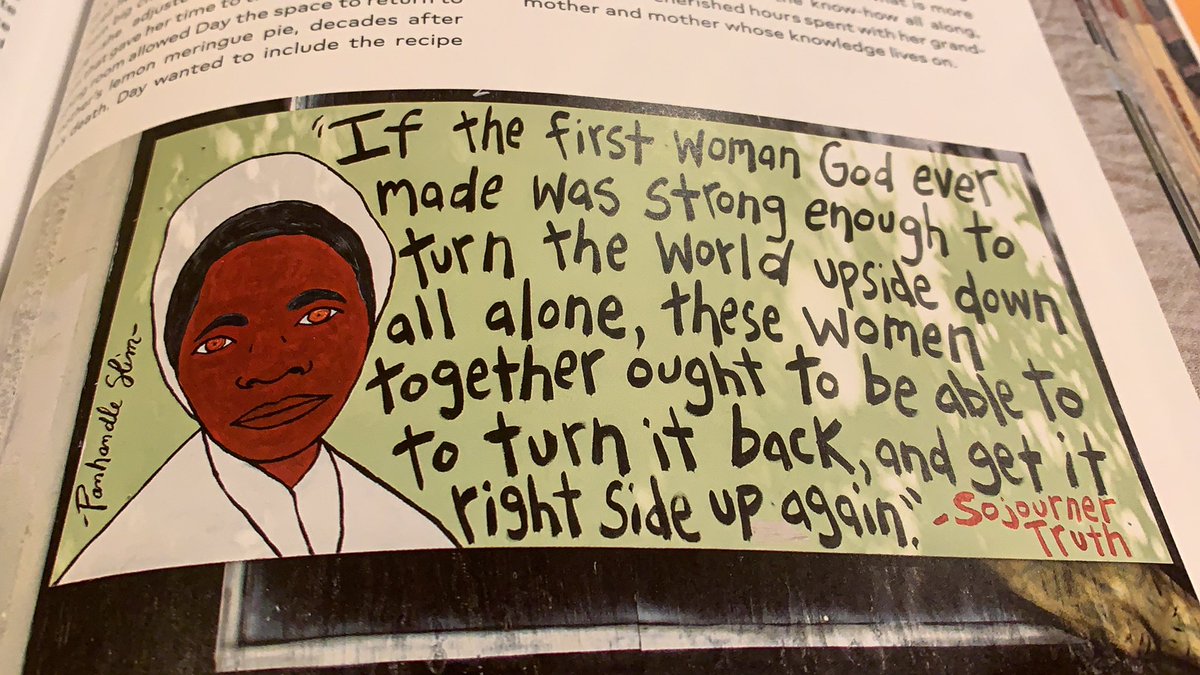 adjust
that gave her time to
room allowed Day the space to return to
lemon meringue pie, decades after
death. Day wanted to include the recipe
is more
the know-how all along,
cherished hours spent with her grand-
mother and mother whose knowledge lives on.
"If the first woman God ever
made was strong enough to
turn the world upside down
all alone, these women
together ought to be able to
to turn it back, and get it
right side up again."
-Sojourner
Truth
-Panhandle Slim-